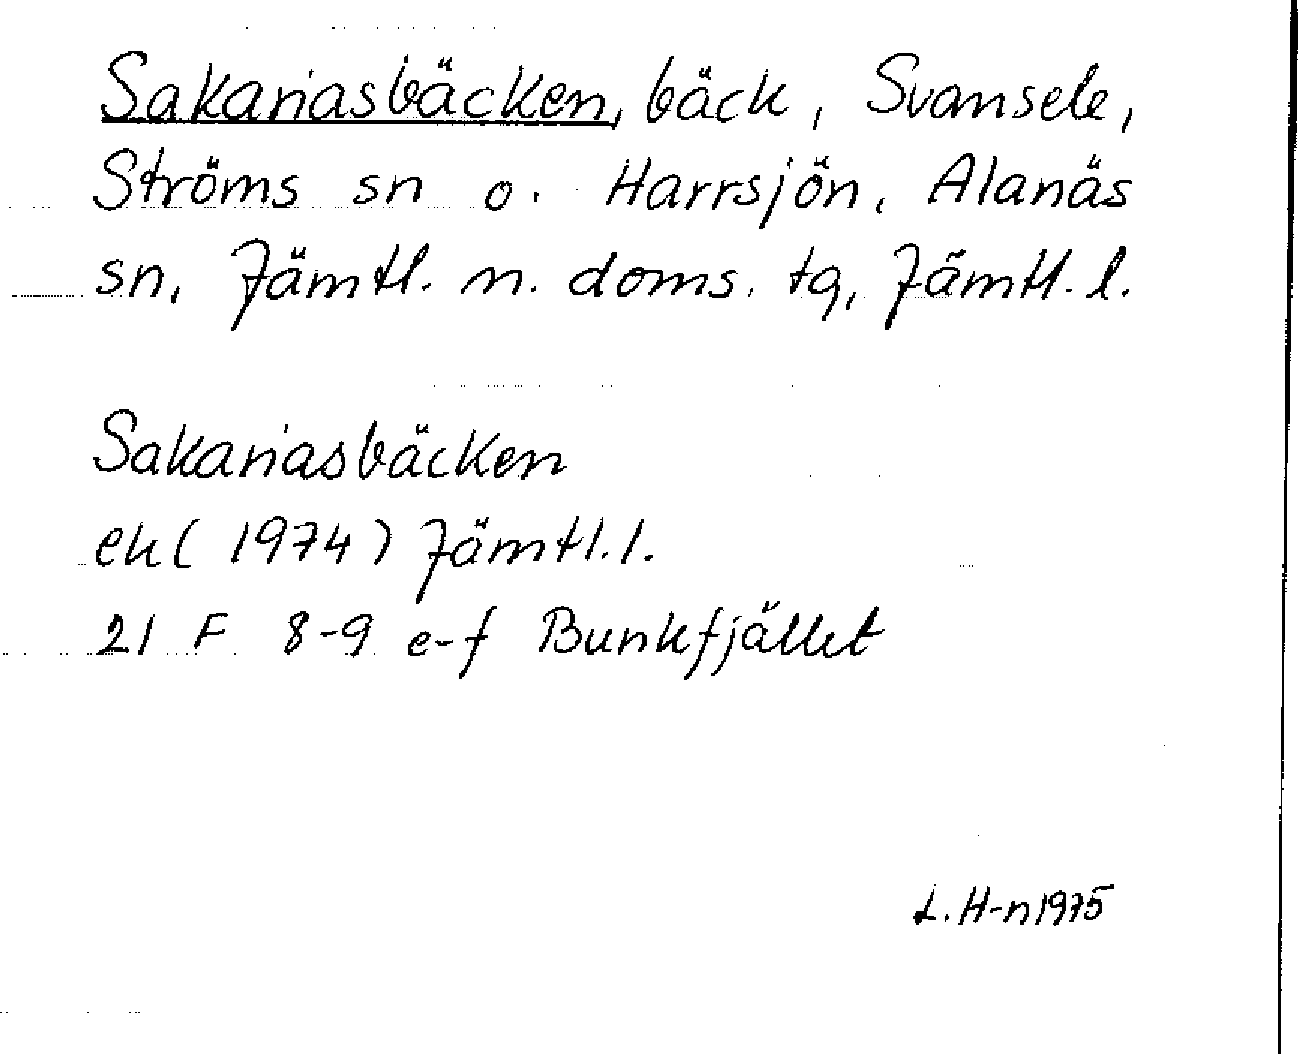 Sakariasbäcken, bäck, Svansele,
Ströms sn o. Harrsjön, Alanäs
sn, Jämtl. n. doms. tg, Jämtl. l.
Sakariasbäcken
ek (1974) Jämtl. l.
21 F 8-9 e-f Bunkfjället
L. H-n 1975